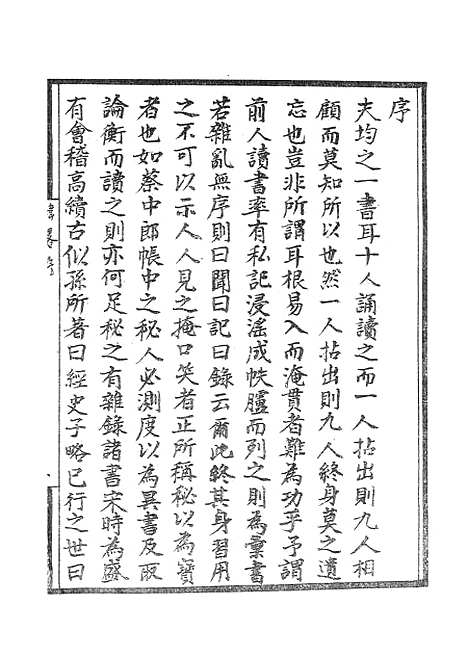 序
夫均之一書耳十人誦讀之而一人拈出則九人相
顧而莫知所以也然一人拈出則九人終身莫之遺
忘也豈非所謂耳根易入而淹貫者難為功乎予謂
前人讀書率有私記浸淫成帙臚而列之則為彙書
若雜亂無序則曰聞曰記曰錄云爾此終其身習用
之不可以示人人見之掩口笑者正所稱秘以為寶
者也如蔡中郎帳中之秘人必測度以為異書及取
論衡而讀之則亦何足秘之有雜錄諸書宋時為盛
有會稽高續古似孫所著曰經史子略已行之世曰
緯略序